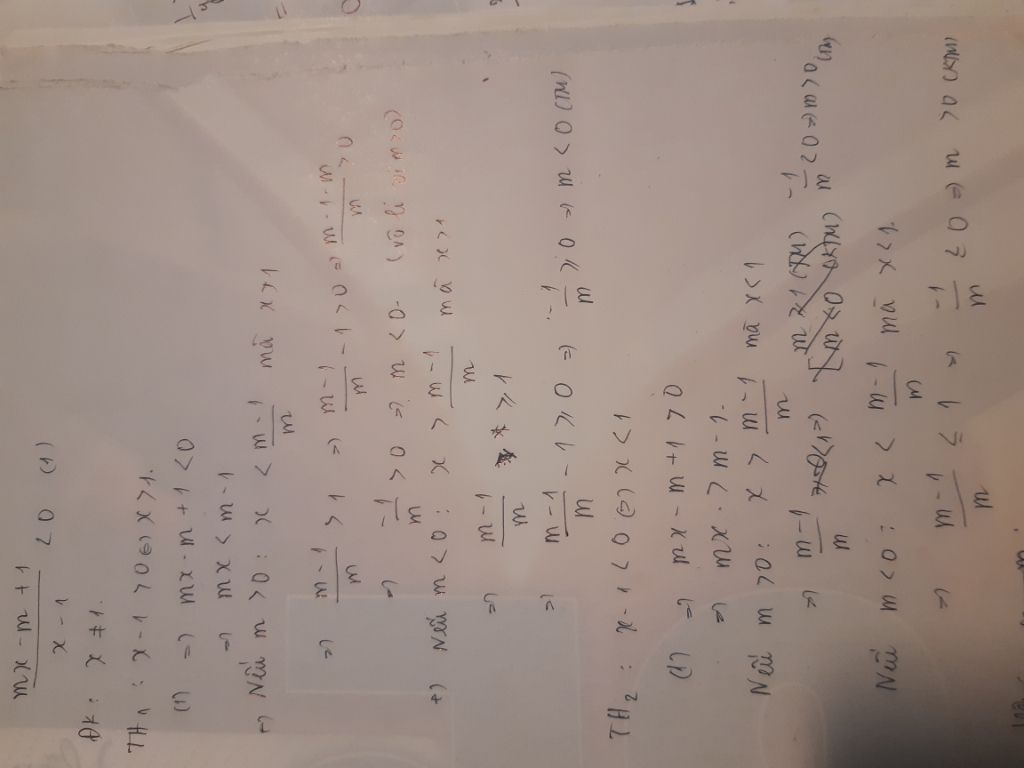 mx - m + 1 / x - 1 < 0 (1)
ĐK: x ≠ 1.
TH1: x - 1 > 0 (=) x > 1.
(1) => mx - m + 1 < 0
=> mx < m - 1
+) Nếu m > 0: x < m - 1 / m mà x > 1
=> m - 1 / m > 1 => m - 1 / m - 1 > 0 => m - 1 - m / m > 0
=> -1 / m > 0 => m < 0. (vô lí vì m > 0)
+) Nếu m < 0: x > m - 1 / m mà x > 1
=> m - 1 / m ≥ 1
=> m - 1 / m - 1 ≥ 0 => -1 / m ≥ 0 => m < 0 (TM)
TH2: x - 1 < 0 (=) x < 1
(1) => mx - m + 1 > 0
=> mx > m - 1.
Nếu m > 0: x > m - 1 / m mà x < 1
=> m - 1 / m < 1 (=) -1 / m < 0 => m > 0 (TM)
Nếu m < 0: x < m - 1 / m mà x < 1.
=> m - 1 / m ≤ 1 -1 / m ≤ 0 => m > 0 (KTM)